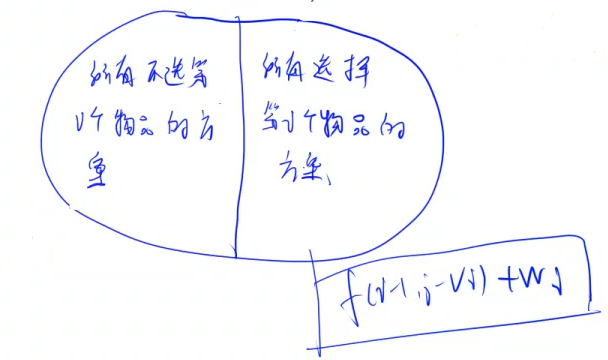 所有不选第
i个物品的方
案
所有选择
第i个物品的
方案
f(i-1,j-Vi)+Wi